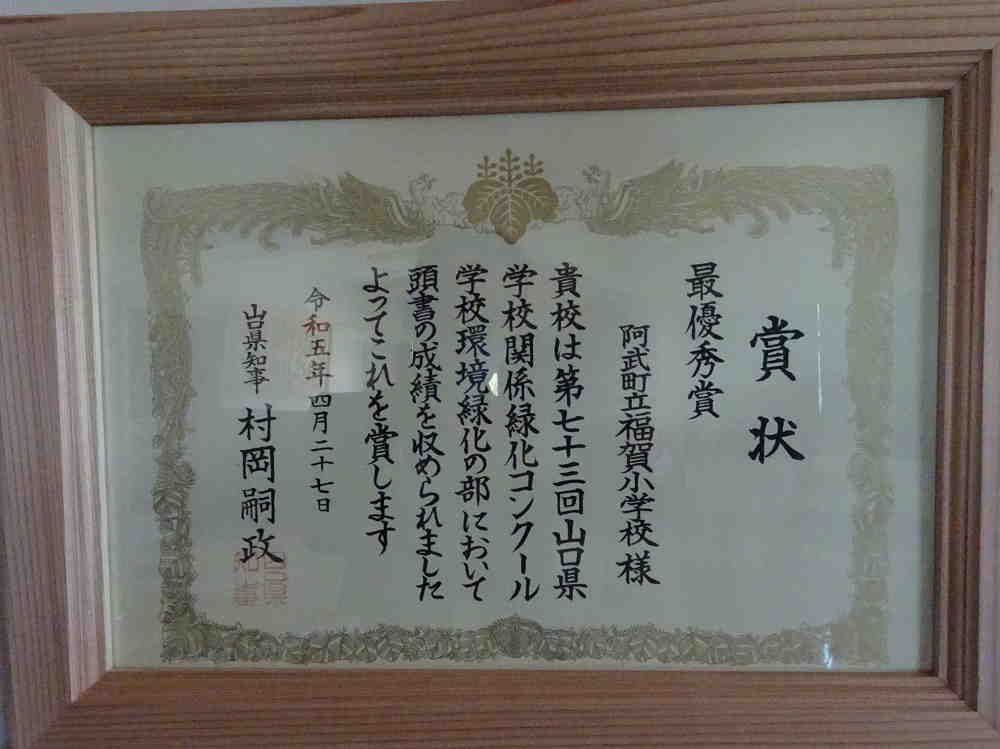 賞状
最優秀賞
阿武町立福賀小学校様
貴校は第七十三回山口県
学校関係緑化コンクール
学校環境緑化の部において
頭書の成績を収められました
よってこれを賞します
令和五年四月二十七日
山口県知事 村岡嗣政